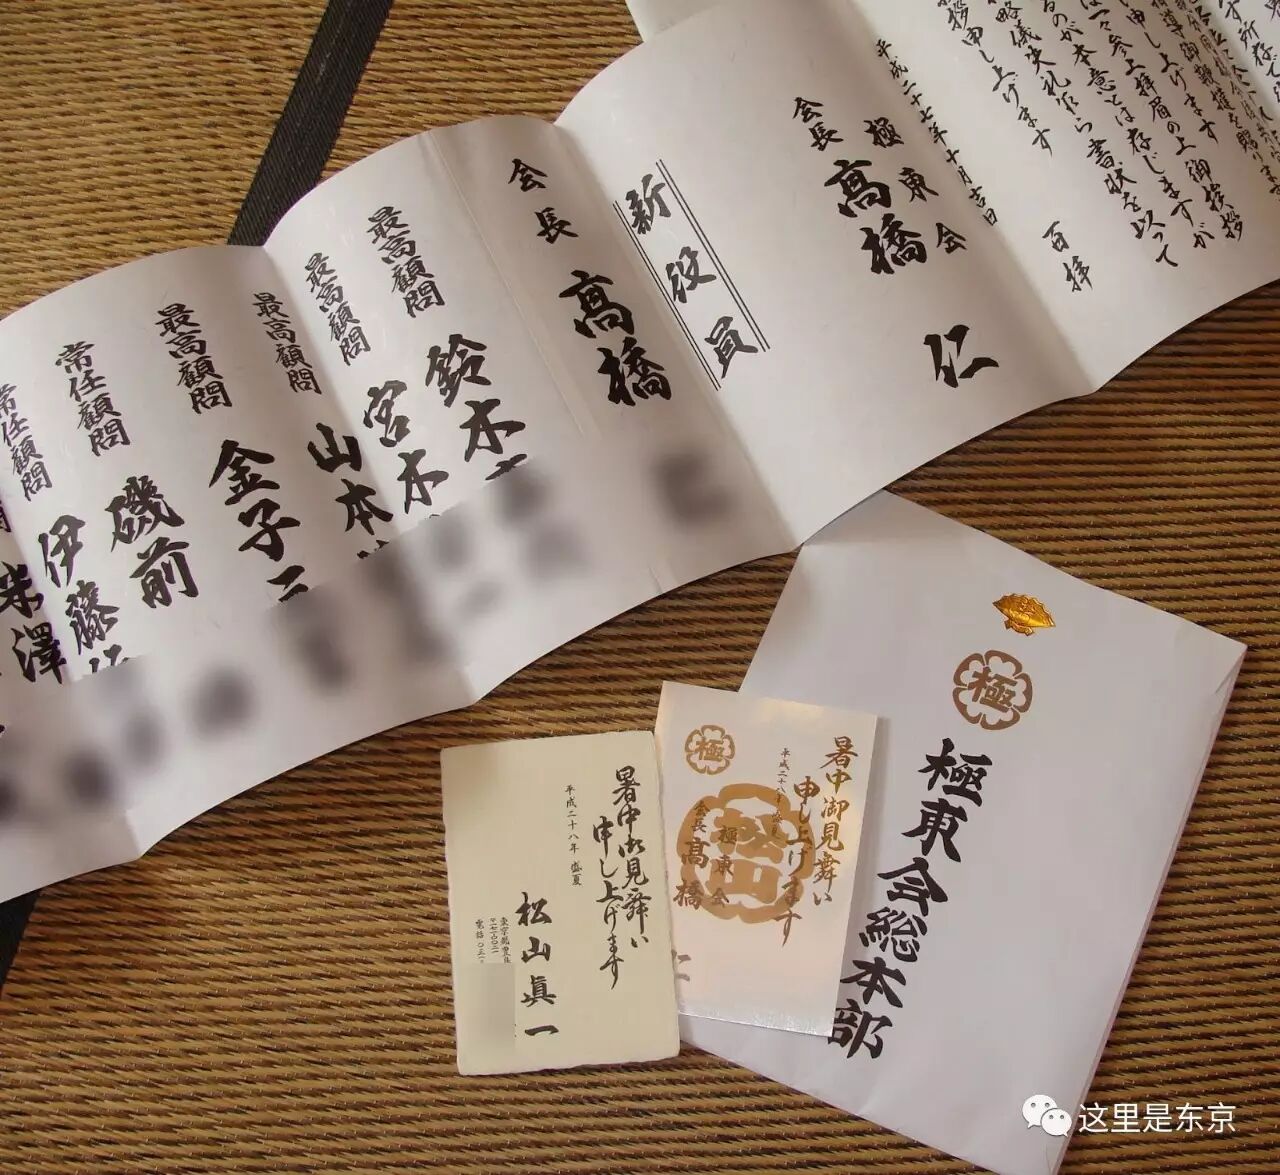 申し上げます
一々参上拝眉の上御挨拶
るのが本意とは存じますが
略儀失礼乍ら書状を以って
挨拶申し上げます
百拝
平成二十七年十月吉日
極東会
会長
高橋
仁
新役員
会長
高橋
最高顧問
鈴木
最高顧問
宮木
最高顧問
山本
最高顧問
金子二
常任顧問
磯前
常任顧問
伊藤
米澤
極
極東会総本部
暑中御見舞い
申し上げます
平成二十八年 盛夏
極
松山
極東会
会長
高橋
仁
暑中御見舞い
申し上げます
平成二十八年 盛夏
松山眞一
东京
这里是东京